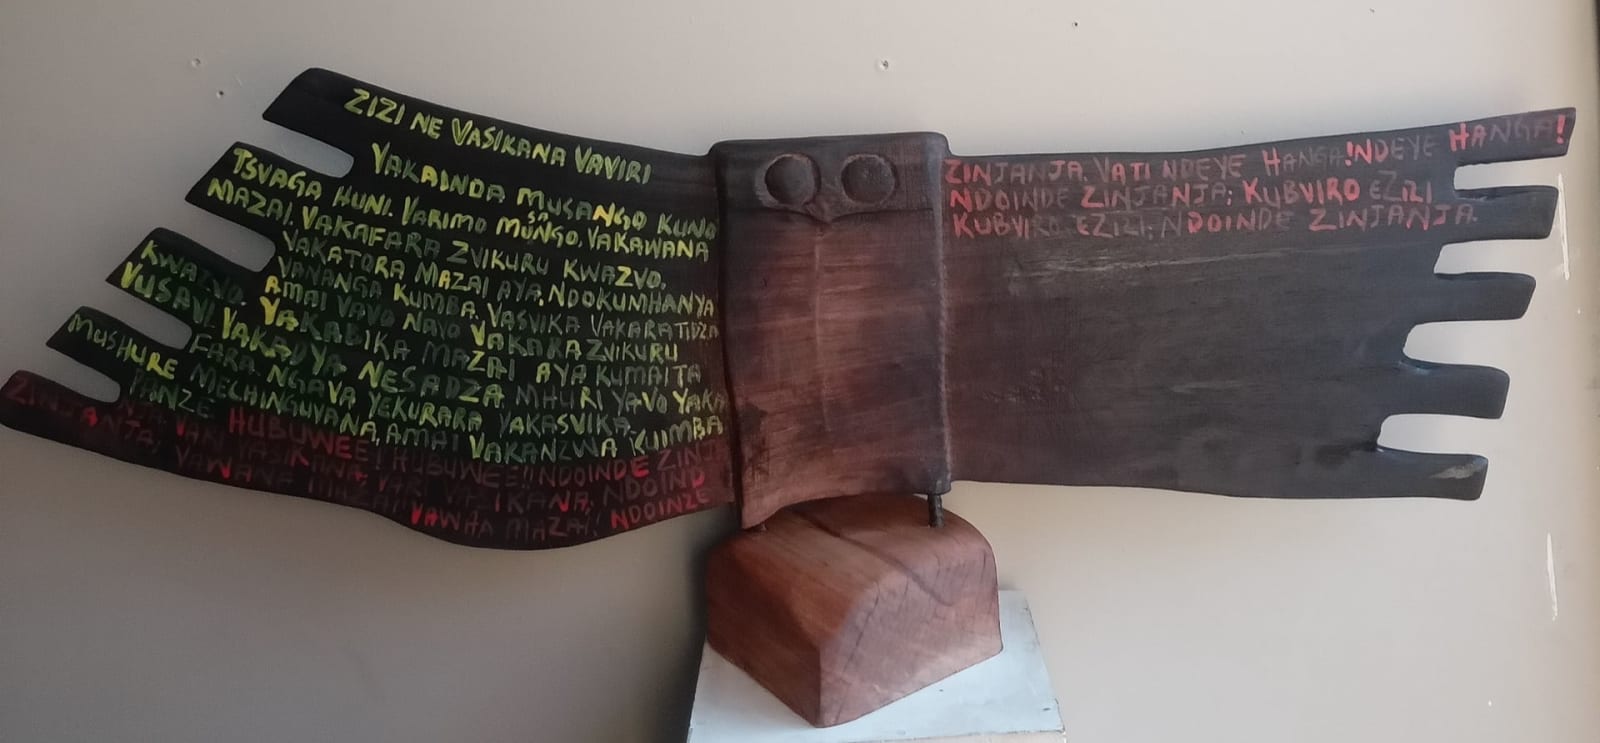 ZIZI NE VASIKANA VAVIRI
VAKAINDA MUSANGO KUNO
TSVAGA HUNI. VARIMO MUSANGO, VAKAWANA
MAZAI. VAKAFARA ZVIKURU KWAZVO.
VAKATORA MAZAI AYA, NDOKUMHANYA
VANANGA KUMBA. VASVIKA VAKARATIDZA
AMAI VAVO NAVO VAKARA ZVIKURU
KWAZVO. VAKABIKA MAZAI AYA KUMAITA
VUSAVI. VAKADYA NESADZA. MHURI YAVO YAKA
FARA. NGAVA YEKURARA YAKASVIKA.
MUSHURE MECHINGUVANA, AMAI VAKANZWA KUIMBA
PANZE HUBUWEE! HUBUWEE!! NDOINDE ZINJ
ZINJANJA, VARI VASIKANA, VARI VASIKANA, NDOIND
ANJA; VAWANA MAZAI VAWHA MAZAI! NDOINZE
ZINJANJA. VATI NDEYE HANGA! NDEYE HANGA!
NDOINDE ZINJANJA; KUBVIRO EZIZI
KUBVIRO EZIZI; NDOINDE ZINJANJA.